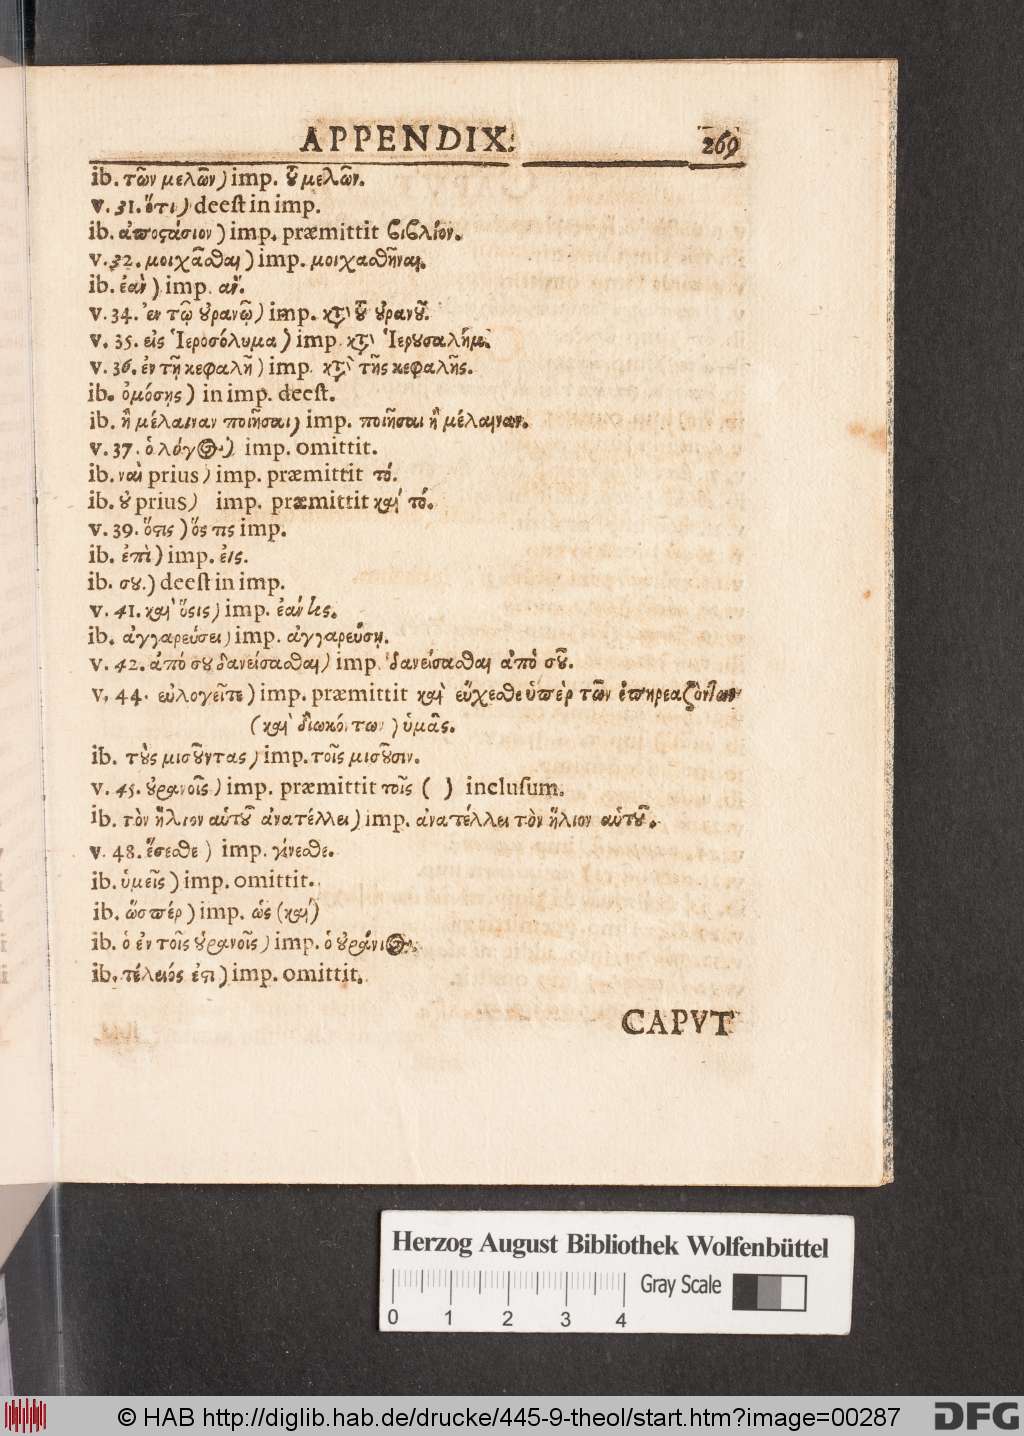 APPENDIX.
269
ib. τῶν μελῶν) imp. ȣ͂ μελῶν.
v. 31. ὅτι) deeſt in imp.
ib. ἀποϛάσιον) imp. præmittit βιβλίον.
v. 32. μοιχᾶσθαι) imp. μοιχασθῆναι.
ib. ἐὰν) imp. ἂν.
v. 34. ἐν τῷ ȣ̓ρανῷ) imp. κτ̀ τȣ͂ ȣ̓ρανȣ͂.
v. 35. εἰς Ἱεροσόλυμα) imp. κτ̀ Ἱερȣσαλήμ.
v. 36. ἐν τῇ κεφαλῇ) imp. κτ̀ τῆς κεφαλῆς.
ib. ὀμόσῃς) in imp. deeſt.
ib. ἢ μέλαιναν ποιῆσαι) imp. ποιῆσαι ἢ μέλαιναν.
v. 37. ὁ λόγος) imp. omittit.
ib. ναὶ prius) imp. præmittit τό.
ib. ȣ̓ prius) imp. præmittit καὶ τό.
v. 39. ὅϛις) ὅς τις imp.
ib. ἐπὶ) imp. εἰς.
ib. σȣ.) deeſt in imp.
v. 41. καὶ ὅϛις) imp. ἐάν τις.
ib. ἀγγαρεύσει) imp. ἀγγαρεύσῃ.
v. 42. ἀπό σȣ δανείσασθαι) imp. δανείσασθαι ἀπὸ σȣ͂.
v. 44. εὐλογεῖτε) imp. præmittit καὶ εὔχεσθε ὑπὲρ τῶν ἐπηρεαζόντων
(καὶ διωκόντων) ὑμᾶς.
ib. τȣ̀ς μισȣ͂ντας) imp. τοῖς μισȣ͂σιν.
v. 45. ȣ̓ρανοῖς) imp. præmittit τοῖς ( ) incluſum.
ib. τὸν ἥλιον αὑτȣ͂ ἀνατέλλει) imp. ἀνατέλλει τὸν ἥλιον αὑτȣ͂.
v. 48. ἔσεσθε) imp. γίνεσθε.
ib. ὑμεῖς) imp. omittit.
ib. ὥσπερ) imp. ὡς (καὶ)
ib. ὁ ἐν τοῖς ȣ̓ρανοῖς) imp. ὁ ȣ̓ράνιος.
ib. τέλειός ἐϛι) imp. omittit.
CAPVT
Herzog August Bibliothek Wolfenbüttel
Gray Scale
0 1 2 3 4
© HAB http://diglib.hab.de/drucke/445-9-theol/start.htm?image=00287
DFG